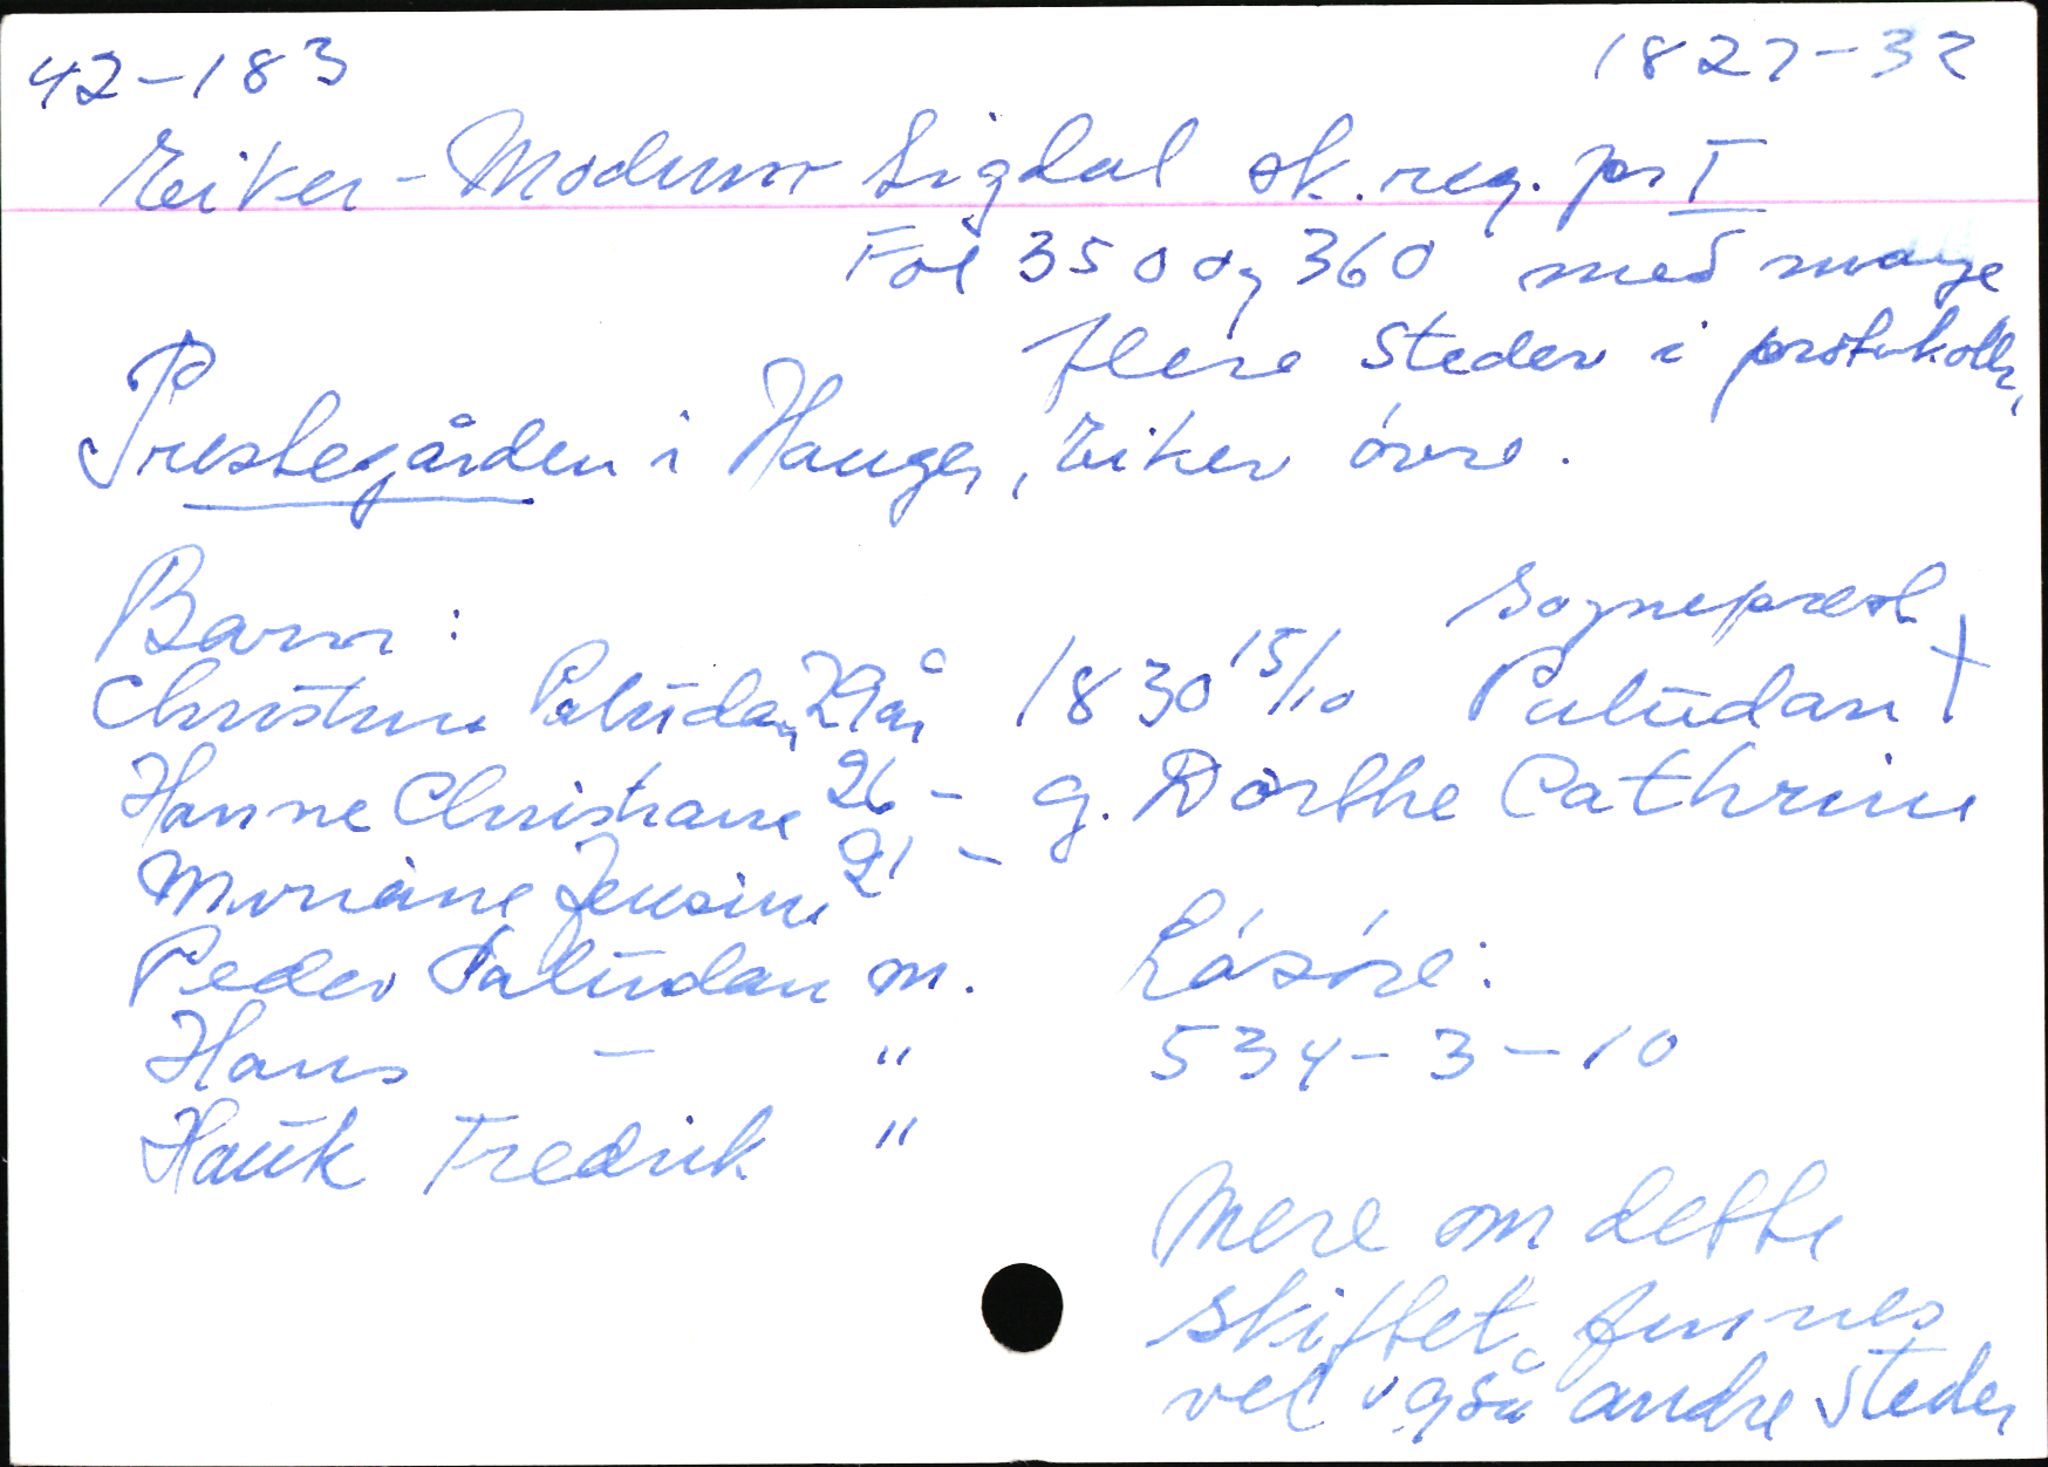 42-183 1827-32
Eiker-Modum Sigdal sk. reg. pr I
Fol 350 og 360 med mange
flere steder i protokollen,
Prestegården i Hauger, Eiker övre.
Barn: Sogneprest
Christine Paludan, 29 år 1830 15/10 Paludan †
Hanne Christiane 26 - g. Dorthe Cathrine
Mariane Jensine 21 -
Peder Paludan m. Lösöre:
Hans - " 534-3-10
Hauk Fredrik "
Mere om dette
skiftet finnes
vel også andre steder